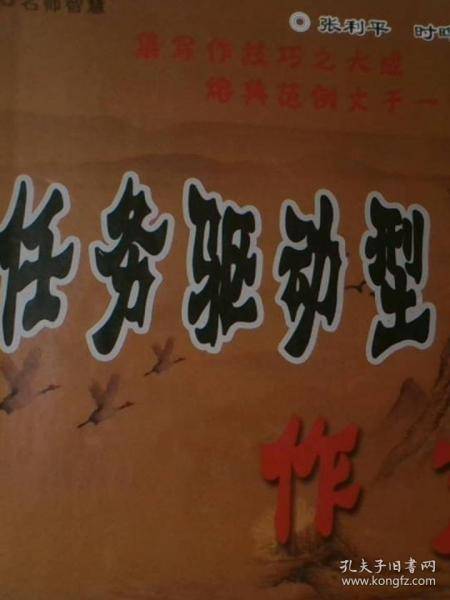 名师智慧
张利平 时晖
集写作技巧之大成
熔典范例文于一
任务驱动型
作
孔夫子旧书网
www.kongfz.com